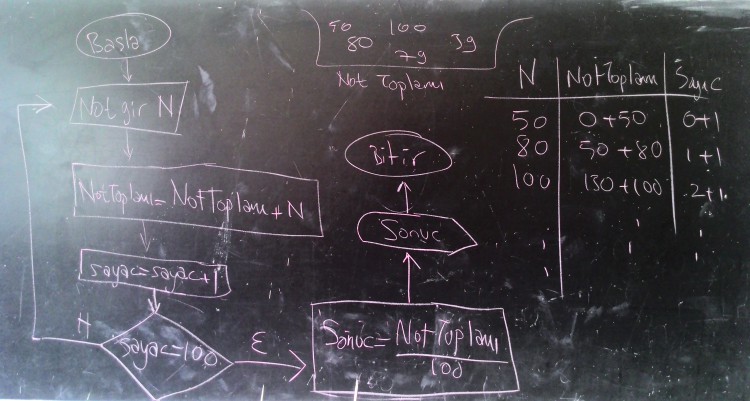 Başla
Not gir N
NotToplam=NotToplam+N
sayac=sayac+1
sayac=100
H
E
Sonuc=NotToplam
100
Sonuc
Bitir
50 100
80 79 39
Not Toplamı
N NotToplam Sayıc
50 0+50 0+1
80 50+80 1+1
100 130+100 2+1